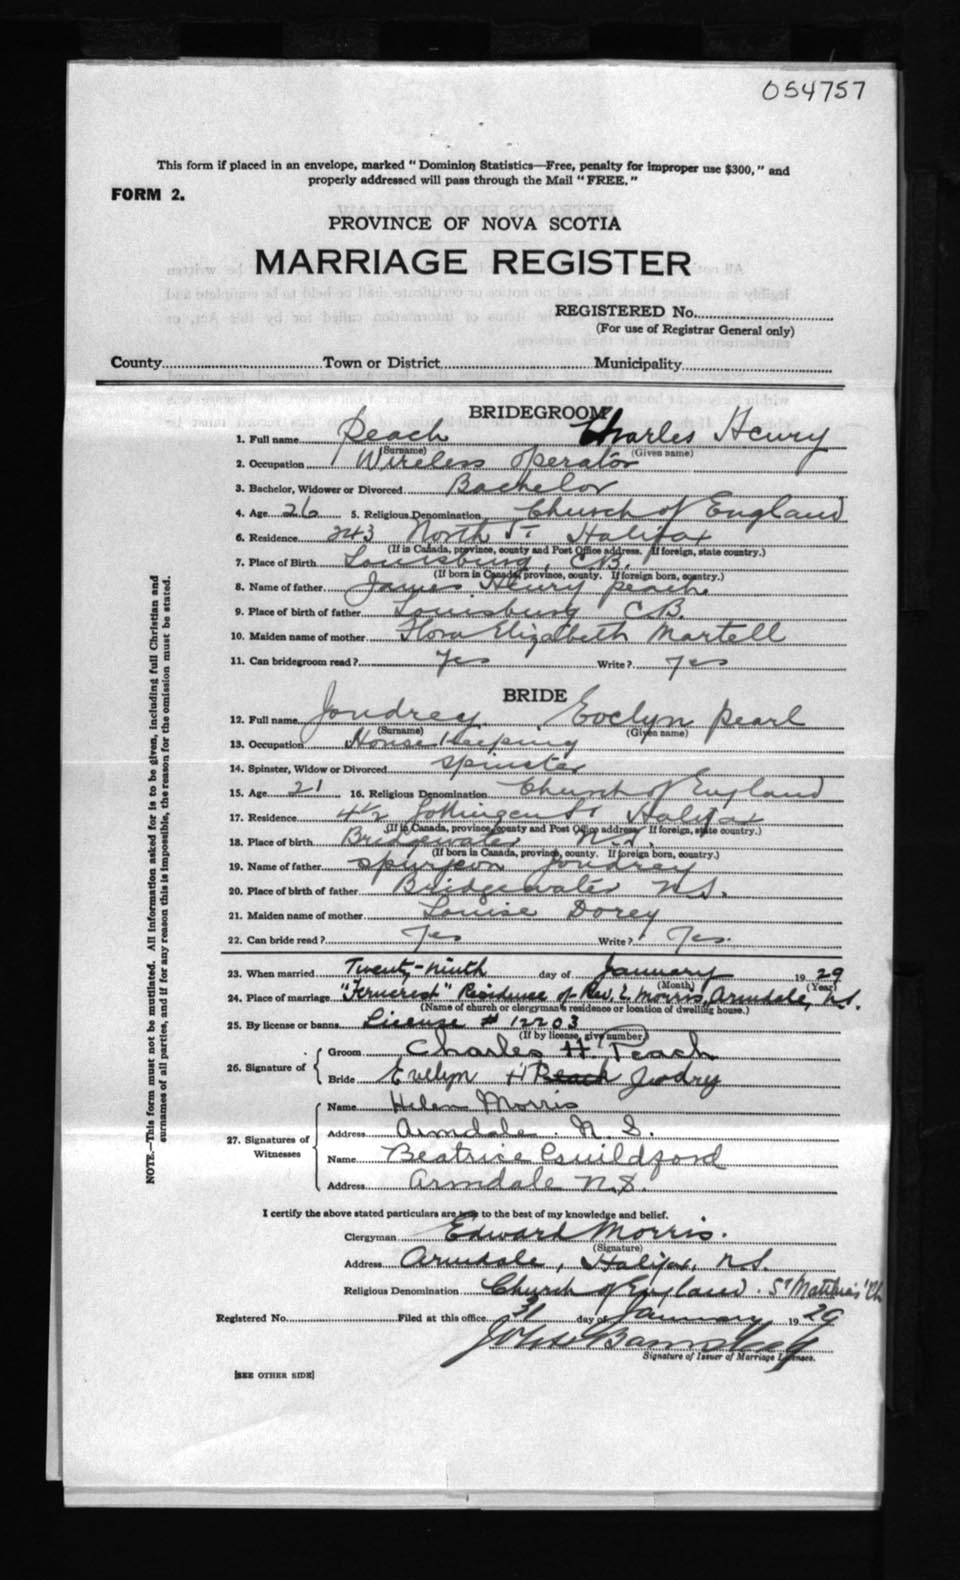 054757
This form if placed in an envelope, marked "Dominion Statistics—Free, penalty for improper use $300," and
properly addressed will pass through the Mail "FREE."
FORM 2.
PROVINCE OF NOVA SCOTIA
MARRIAGE REGISTER
REGISTERED No.
(For use of Registrar General only)
County Town or District Municipality
BRIDEGROOM
1. Full name Peach Charles Henry
(Surname) (Given name)
2. Occupation Wireless operator
3. Bachelor, Widower or Divorced Bachelor
4. Age 26 5. Religious Denomination Church of England
6. Residence 243 North St. Halifax
(If in Canada, province, county and Post Office address. If foreign, state country.)
7. Place of Birth Louisburg, C.B.
(If born in Canada, province, county. If foreign born, country.)
8. Name of father James Henry Peach
9. Place of birth of father Louisburg C.B.
10. Maiden name of mother Flora Elizabeth Martell
11. Can bridegroom read? Yes Write? Yes
BRIDE
12. Full name Joudrey Evelyn Pearl
(Surname) (Given name)
13. Occupation House Keeping
14. Spinster, Widow or Divorced Spinster
15. Age 21 16. Religious Denomination Church of England
17. Residence Gottingen St Halifax
(If in Canada, province, county and Post Office address. If foreign, state country.)
18. Place of birth Bridgewater N.S.
(If born in Canada, province, county. If foreign born, country.)
19. Name of father Spurgeon Joudrey
20. Place of birth of father Bridgewater N.S.
21. Maiden name of mother Louise Dorey
22. Can bride read? Yes Write? Yes.
23. When married Twenty-ninth day of January 1929
(Month) (Year)
24. Place of marriage "Ferncrest" Residence of Rev. E. Morris, Armdale, N.S.
(Name of church or clergyman's residence or location of dwelling house.)
25. By license or banns License # 12203
(If by license, give number)
26. Signature of
Groom Charles H. Peach
Bride Evelyn H Peach Jodry
27. Signatures of Witnesses
Name Helen Morris
Address Armdale. N. S.
Name Beatrice Guildford
Address Armdale N.S.
I certify the above stated particulars are true to the best of my knowledge and belief.
Clergyman Edward Morris.
(Signature)
Address Armdale, Halifax, N.S.
Religious Denomination Church of England. St Matthias' Ch
Registered No. Filed at this office 31 day of January 1929
Signature of Issuer of Marriage Licenses.
[SEE OTHER SIDE]
NOTE.—This form must not be mutilated. All information asked for is to be given, including full Christian and
surnames of all parties, and if for any reason this is impossible, the reason for the omission must be stated.